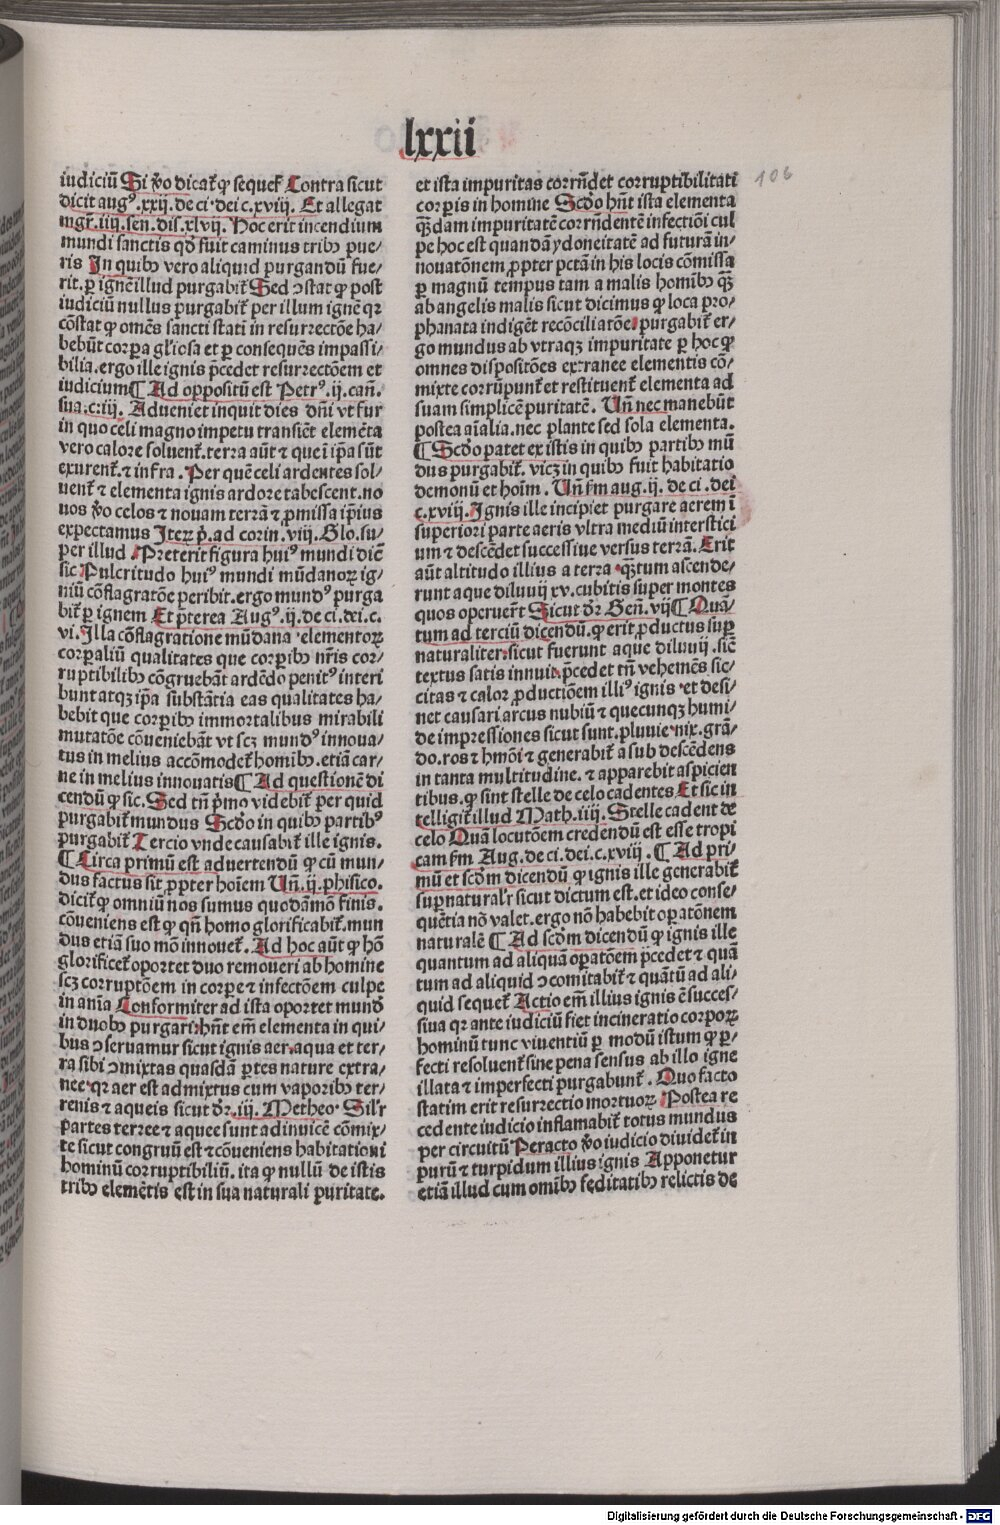 lxxii
106
iudiciū Si v̄o dicat̄ ꝙ sequet̄ Contra sicut
dicit augꝰ.xxij.de ci.dei c.xviij. Et allegat
mgr̄.iiij.sen.dis.xlvij. Hoc erit incendium
mundi sanctis qd̄ fuit caminus tribꝫ pue/
ris In quibꝫ vero aliquid purgandū fue/
rit.ꝑ ignē illud purgabit̄ Sed ↄstat ꝙ post
iudiciū nullus purgabit̄ per illum ignē qꝛ
cōstat ꝙ omēs sancti stati in resurrectōe ha/
bebūt corꝑa gl̄iosa et ꝑ consequēs impassi/
bilia.ergo ille ignis p̄cedet resurrectōem et
iudicium¶ Ad oppositū est Petrꝰ.ij.cañ.
sua.c.iij. Adueniet inquit dies dn̄i vt fur
in quo celi magno impetu transiēt elemēta
vero calore soluent̄.terra aūt ⁊ que ī ip̄a sūt
exurent̄.⁊ infra. Per quē celi ardentes sol/
uent̄ ⁊ elementa ignis ardore tabescent.no
uos v̄o celos ⁊ nouam terrā ⁊ ꝓmissa ip̄ius
expectamus Iteꝫ p̄.ad corin.vij.Glo.su/
per illud Preterit figura huiꝰ mundi diē
sic Pulcritudo huiꝰ mundi mūdanoꝝ ig/
niū cōflagratōe peribit.ergo mundꝰ purga
bit̄ ꝑ ignem Et p̄terea Augꝰ.ij.de ci.dei.c.
vi. Illa cōflagratione mūdana elementoꝝ
corꝑaliū qualitates que corꝑibꝫ nr̄is cor/
ruptibilibꝫ cōgruebāt ardēdo penitꝰ interi
bunt atqꝫ ip̄a substātia eas qualitates ha/
bebit que corꝑibꝫ immortalibus mirabili
mutatōe cōueniebāt vt scꝫ mundꝰ innoua/
tus in melius accōmodet̄ homibꝫ.etiā car/
ne in melius innouatis¶ Ad questionē di
cendū ꝙ sic. Sed tn̄ p̄mo videbit̄ per quid
purgabit̄ mundus Scd̄o in quibꝫ partibꝰ
purgabit̄ Tercio vnde causabit̄ ille ignis.
¶ Circa primū est aduertendū ꝙ cū mun/
dus factus sit ꝓpter hoīem Un̄.ij.phisico.
dicit̄ ꝙ omniū nos sumus quodāmō finis.
cōueniens est ꝙ qn̄ homo glorificabit̄.mun
dus etiā suo mō innouet̄. Ad hoc aūt ꝙ hō
glorificet̄ oportet duo remoueri ab homine
scꝫ corruptōem in corꝑe ⁊ infectōem culpe
in anīa Conformiter ad ista oportet mundū
in duobꝫ purgari hn̄t em̄ elementa in qui/
bus ↄseruamur sicut ignis aer.aqua et ter/
ra sibi ↄmixtas quasdā ꝑtes nature extra/
nee qꝛ aer est admixtus cum vaporibꝫ ter/
renis ⁊ aqueis sicut dr̄.iij. Metheo. Sil̄r
partes terree ⁊ aquee sunt adinuicē cōmix/
te sicut congruū est ⁊ cōueniens habitationi
hominū corruptibiliū.ita ꝙ nullū de istis
tribꝫ elemētis est in sua naturali puritate.
et ista impuritas corrn̄det corruptibilitati
corꝑis in homine Scd̄o hn̄t ista elementa
q̄ꝫdam impuritatē corrn̄dentē infectiōi cul
pe hoc est quandā ydoneitatē ad futurā in/
nouatōnem ꝓpter pctā in his locis cōmissa
ꝑ magnū tempus tam a malis homibꝫ q̄ꝫ
ab angelis malis sicut dicimus ꝙ loca pro/
phanata indigēt recōciliatōe purgabit̄ er/
go mundus ab vtraqꝫ impuritate ꝑ hoc ꝙ
omnes dispositōes extranee elementis cō/
mixte corrūpunt̄ et restituent̄ elementa ad
suam simplicē puritatē. Un̄ nec manebūt
postea aīalia.nec plante sed sola elementa.
¶ Scd̄o patet ex istis in quibꝫ partibꝫ mū
dus purgabit̄. vicꝫ in quibꝫ fuit habitatio
demonū et hoīm. Un̄ fm̄ aug.ij.de ci.dei
c.xviij. Ignis ille incipiet purgare aerem ī
superiori parte aeris vltra mediū interstici
um ⁊ descēdet successiue versus terrā. Erit
aūt altitudo illius a terra q̄ꝫtum ascende/
runt aque diluuij xv.cubitis super montes
quos operuer̄t Sicut dr̄ Geñ.vij¶ Quā/
tum ad terciū dicendū.ꝙ erit ꝓductus suꝑ
naturaliter sicut fuerunt aque diluuij.sic̄
textus satis innuit p̄cedet tn̄ vehemēs sic/
citas ⁊ calor ꝓductiōem illiꝰ ignis et desi/
net causari arcus nubiū ⁊ quecunqꝫ humi/
de impressiones sicut sunt.pluuie nix.grā/
do.ros ⁊ hmōi ⁊ generabit̄ a sub descēdens
in tanta multitudine.⁊ apparebit aspicien
tibus.ꝙ sint stelle de celo cadentes Et sic in
telligit̄ illud Math.iiij. Stelle cadent de
celo Quā locutōem credendū est esse tropi
cam fm̄ Aug.de ci.dei.c.xviij. ¶ Ad pri/
mū et scd̄m dicendū ꝙ ignis ille generabit̄
suꝑnatural̄r sicut dictum est.et ideo conse/
quētia nō valet.ergo nō habebit oꝑatōnem
naturalē ¶ Ad scd̄m dicendū ꝙ ignis ille
quantum ad aliquā oꝑatōem p̄cedet ⁊ quā
tum ad aliquid ↄcomitabit̄ ⁊ quātū ad ali/
quid sequet̄ Actio em̄ illius ignis ē succes/
siua qꝛ ante iudiciū fiet incineratio corpoꝝ
hominū tunc viuentiū ꝑ modū istum ꝙ ꝑ/
fecti resoluent̄ sine pena sensus ab illo igne
illata ⁊ imperfecti purgabunt̄. Quo facto
statim erit resurrectio mortuoꝝ Postea re
cedente iudicio inflamabit̄ totus mundus
per circuitū Peracto v̄o iudicio diuidet̄ in
purū ⁊ turpidum illius ignis Apponetur
etiā illud cum omībꝫ feditatibꝫ relictis de
Digitalisierung gefördert durch die Deutsche Forschungsgemeinschaft - DFG